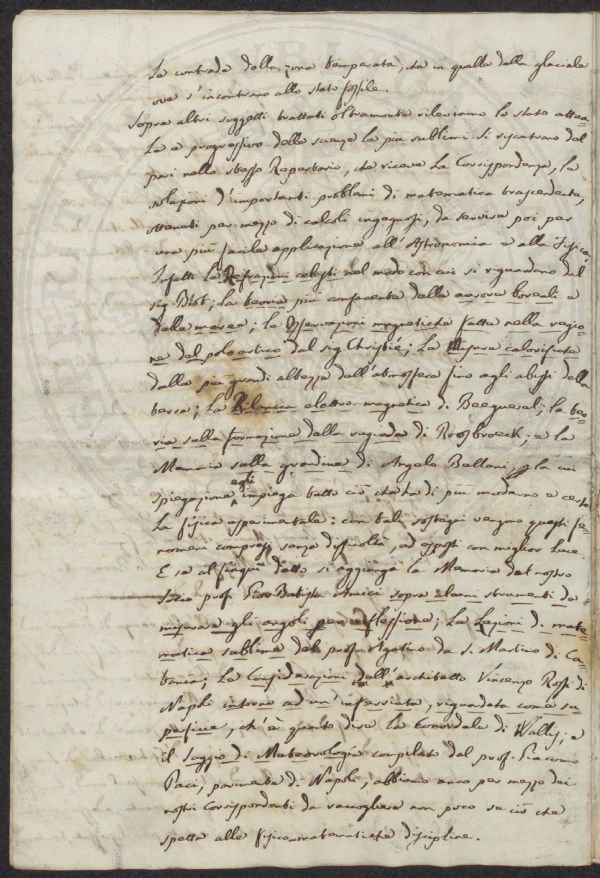 le contrade della zona temperata, che in quelle della glaciale
ove s'incontrano allo stato fossile.
Sopra altri suggetti trattati oltramonte rileviamo lo stato attua-
le e progressivo delle scienze le più sublimi. Si riscontrano del
pari nello stesso Repertorio, che riceve la Corrispondenza, le
soluzioni d'importanti problemi di matematica trascedente,
ottenuti per mezzo di calcoli ingegnosi, da servire poi per
una più facile applicazione all'Astronomia e alla Fisica.
Infatti le Refrazioni celesti nel modo con cui si riguardano dal
sig. Biot; la teoria più confacente delle aurore boreali e
delle maree; le Osservazioni magnetiche fatte nella regio-
ne del polo artico dal sig. Christie; la Misura calorifica
dalle più grandi altezze dell'atmosfera fino agli abissi della
terra; la Bilancia elettro-magnetica di Becquerel; la teo-
ria sulla formazione della rugiada di Roosbroeck; e la
Memoria sulla grandine di Angelo Bellani, la cui
spiegazione egli impiega tutto ciò che ha di più moderno e certo
la fisica esperimentale: con tali sostegni vengono questi fe-
nomeni compresi senza difficoltà, ed esposti con miglior luce.
E se al fin qui detto si aggiunga la Memoria del nostro
Socio prof. Gio: Batista Amici sopra alcuni strumenti da
misurare gli angoli per reflessione; le Lezioni di mate-
matica sublime del prof. Agatino da S. Martino di Ca-
tania; le Considerazioni dell'architetto Vincenzo Rossi di
Napoli intorno ad un'inferriata, riguardata come su-
perficie, ch'è quanto dire la Conoidale di Wallis; e
il Saggio di Meteorologia compilato dal prof. Giacomo
Paci, parimente di Napoli, abbiamo anco per mezzo dei
nostri Corrispondenti da raccogliere non poco su ciò che
spetta alle fisico-matematiche discipline.